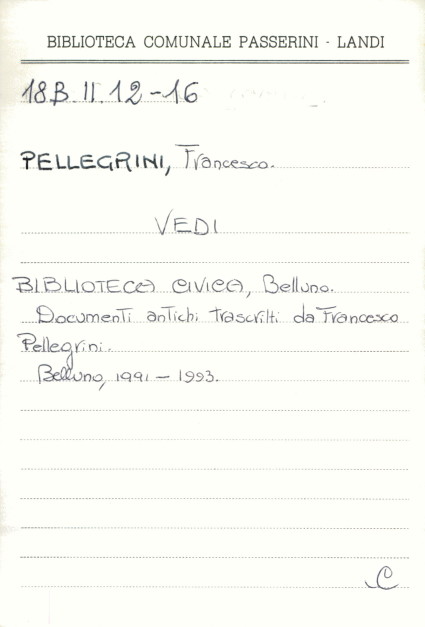 BIBLIOTECA COMUNALE PASSERINI - LANDI
18B.II.12-16
PELLEGRINI, Francesco.
VEDI
BIBLIOTECA CIVICA, Belluno.
Documenti antichi trascritti da Francesco
Pellegrini.
Belluno, 1991 - 1993.
C